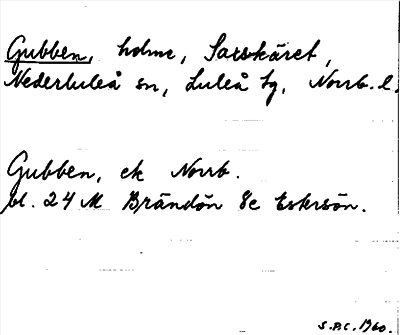 Gubben, holme, Sarskäret,
Nederluleå sn, Luleå tg, Norrb. l.
Gubben, ek Norrb.
bl. 24 M Brändön 8e Estersön.
S.P.C. 1960.